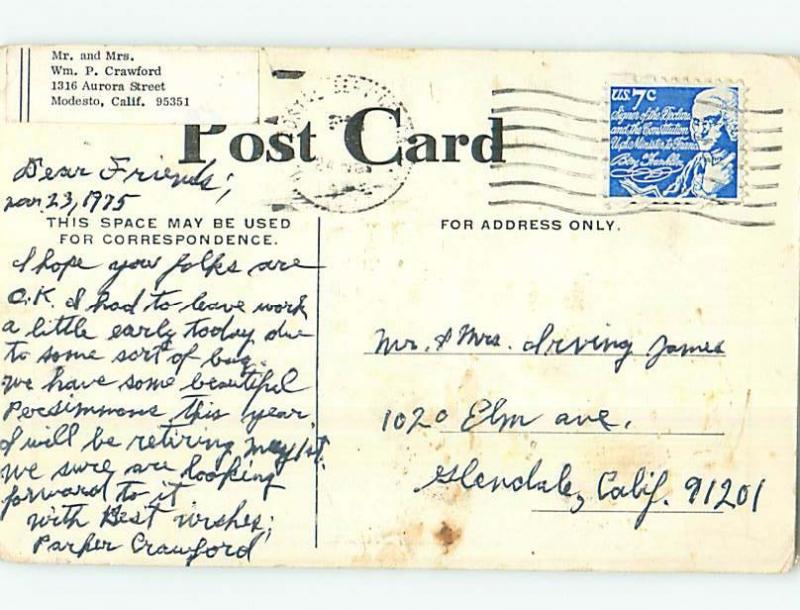 Mr. and Mrs.
Wm. P. Crawford
1316 Aurora Street
Modesto, Calif. 95351
Post Card
U.S. 7c
Signer of the Declara
and the Constitution
U.S. Minister to France
Ben Franklin
Dear Friends;
Nov. 23, 1975
THIS SPACE MAY BE USED
FOR CORRESPONDENCE.
FOR ADDRESS ONLY.
I hope your folks are
O.K. I had to leave work
a little early today due
to some sort of bug.
We have some beautiful
Persimmons this year.
I will be retiring May 1st.
We sure are looking
forward to it
With Best Wishes;
Parker Crawford
Mr. & Mrs. Irving James
1020 Elm ave.
Glendale, Calif. 91201